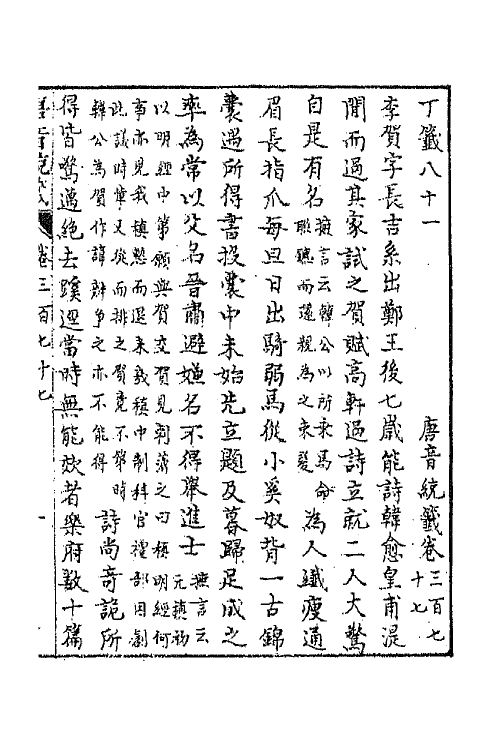 丁籤八十一　唐音統籤卷三百七十七
李賀字長吉系出鄭王後七歲能詩韓愈皇甫湜
聞而過其家試之賀賦高軒過詩立就二人大驚
自是有名
摭言云韓公以所乘馬命
聯鑣而還親為之束髮
為人纖瘦通
眉長指爪每旦日出騎弱馬從小奚奴背一古錦
囊遇所得書投囊中未始先立題及暮歸足成之
率為常以父名晉肅避嫌名不得舉進士
摭言云
元稹初
以明經中第願與賀交賀見刺薄之曰稹明經何
事亦見我稹慙而退未幾稹中制科官禮部因創
此議時輩又從而排之賀竟不第時
韓公為賀作諱辨爭之亦不能得
詩尚奇詭所
得皆驚邁絕去蹊逕當時無能效者樂府數十篇
唐音統籤 卷三百七十七 一